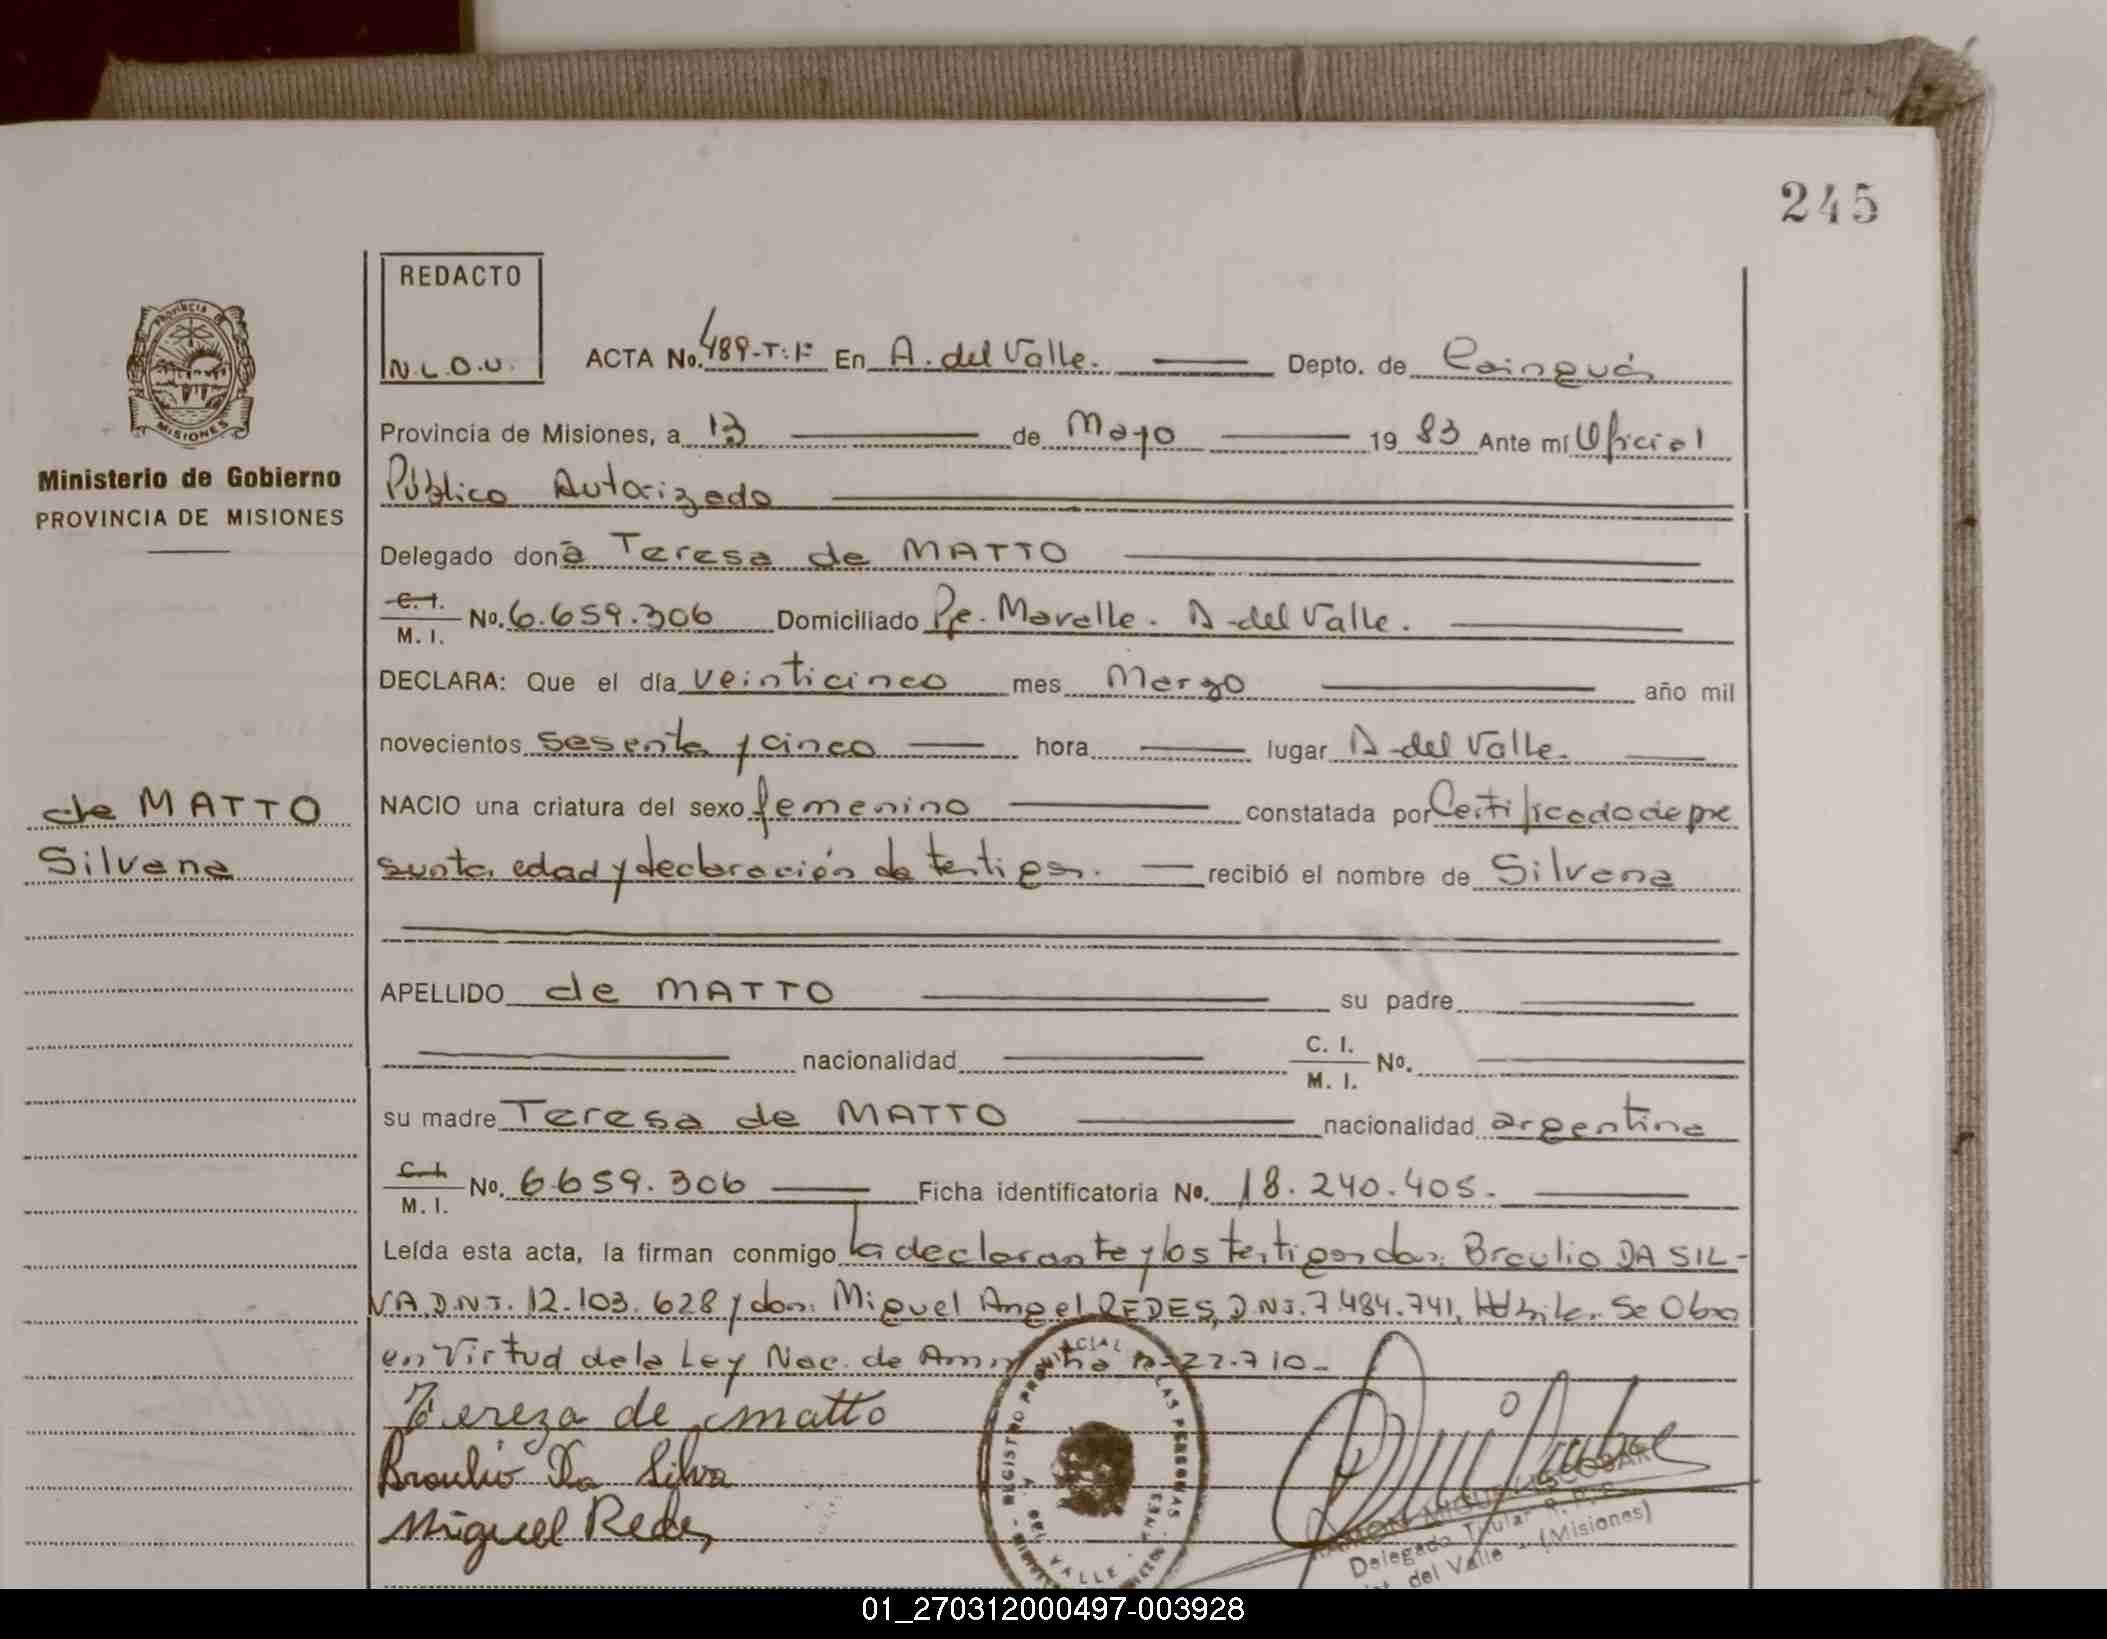 245
REDACTO
N.L.O.U.
ACTA No. 489-T:1º En A. del Valle. Depto. de Cainguás
Provincia de Misiones, a 13 de Mayo 1983 Ante mí Oficial
Público Autorizado
Ministerio de Gobierno
PROVINCIA DE MISIONES
Delegado donã Teresa de MATTO
C.I. M.I. No. 6.659.306 Domiciliado Pje. Maralle. A-del Valle.
DECLARA: Que el día veinticinco mes Marzo año mil
novecientos sesenta y cinco hora lugar A-del Valle.
de MATTO
Silvana
NACIO una criatura del sexo femenino constatada por Certificado de pre
sunta edad y declaración de testigos. recibió el nombre de Silvana
APELLIDO de MATTO su padre
nacionalidad C. I. M. I. No.
su madre Teresa de MATTO nacionalidad argentina
C.I. M.I. No. 6.659.306 Ficha identificatoria No. 18.240.405.
Leída esta acta, la firman conmigo la declarante y los testigos don: Braulio DA SIL-
VA, D.N.I. 12.103.628 y don: Miguel Angel REDES, D.N.I. 7.484.741, Hábile. Se Obra
en Virtud de la Ley Nac. de Amnistía nº 22.710-
Tereza de matto
Braulio Da Silva
Miguel Redes
REGISTRO PROVINCIAL LAS PERSONAS
A DEL VALLE
RAMON MIGUEL ESCOBAR
Delegado Titular R. P. P.
del Valle - (Misiones)
01_270312000497-003928